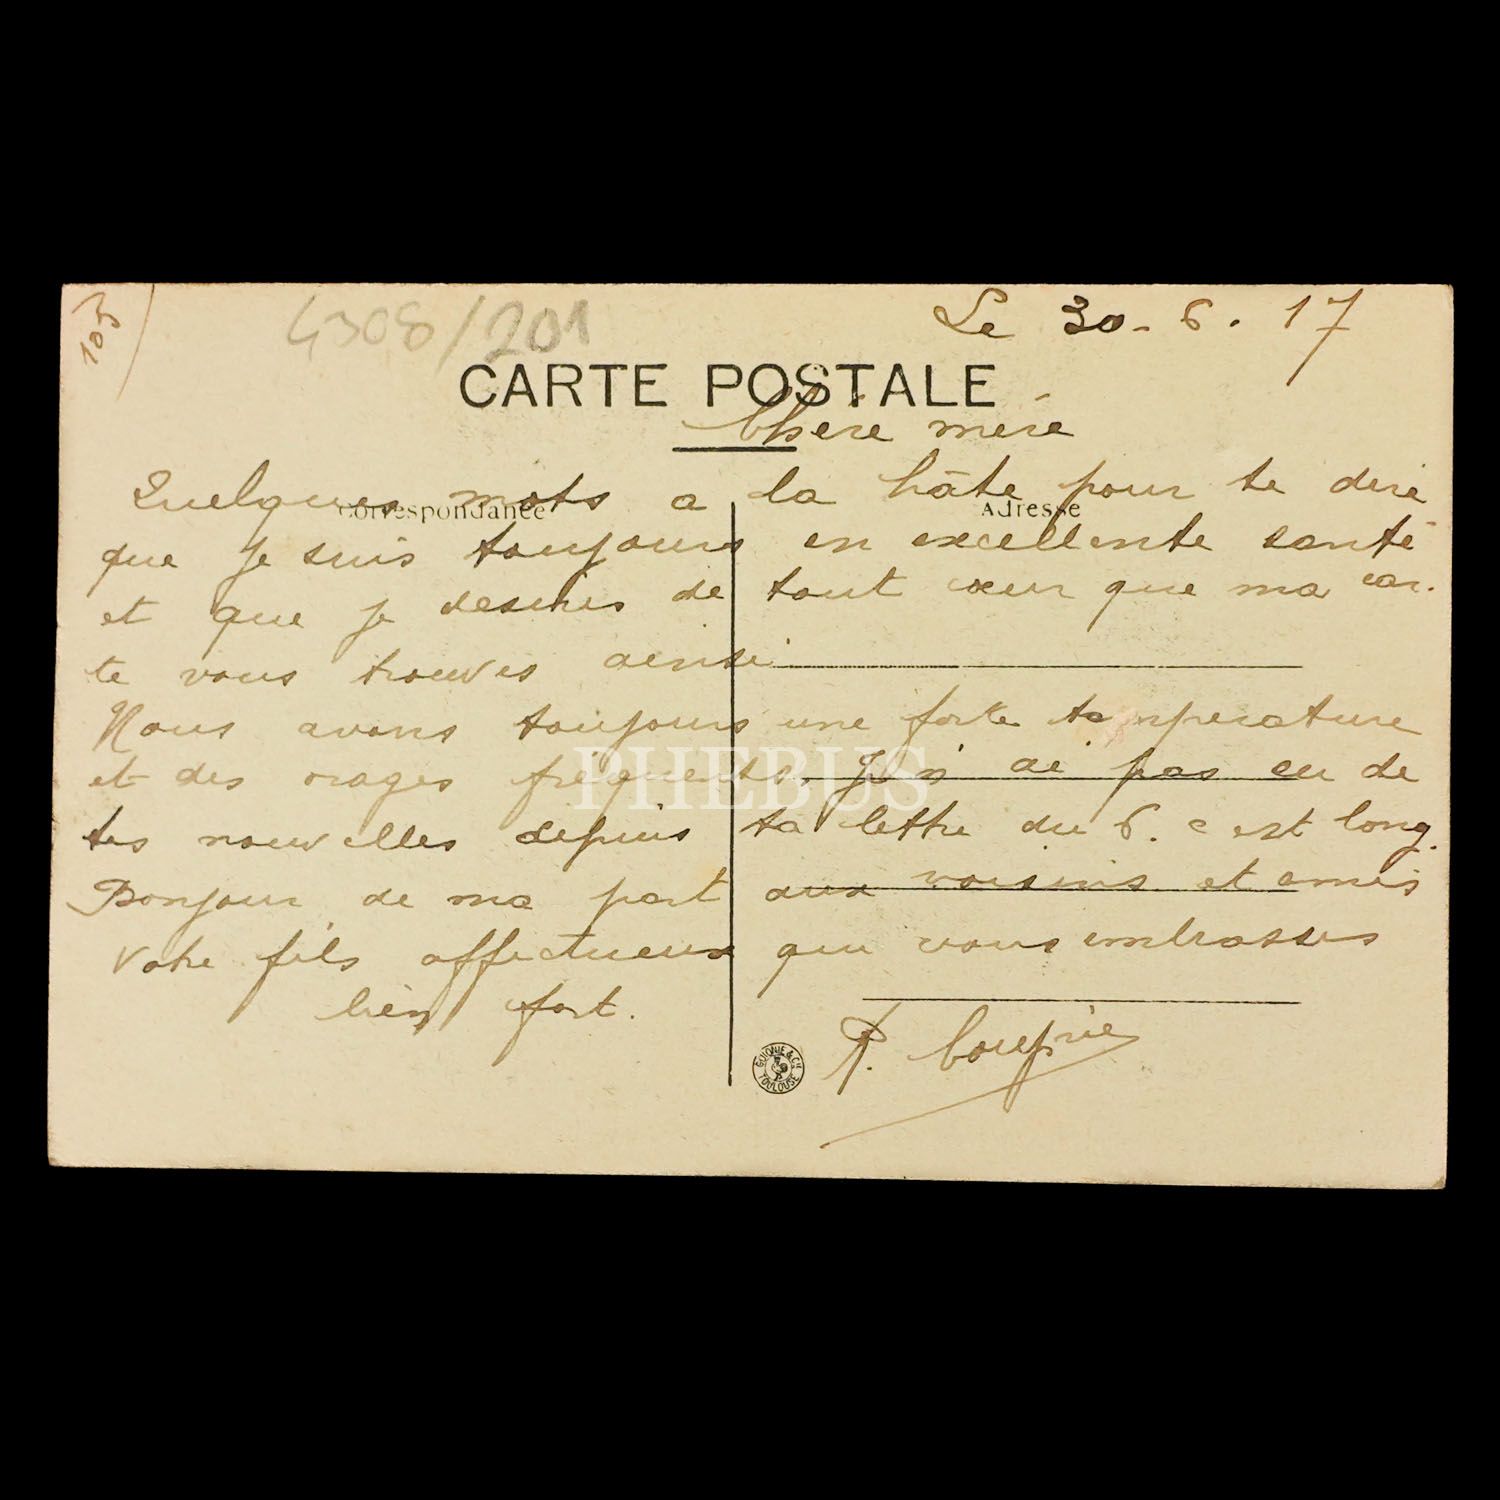 105
4308/201
Le 30-6.17
CARTE POSTALE
Chère mère
Correspondance
Adresse
Quelques mots a la hâte pour te dire
que je suis toujours en excellente santé
et que je desires de tout cœur que ma car.
te vous trouves ainsi
Nous avons toujours une forte temperature
et des orages fréquents. Je n'ai pas eu de
tes nouvelles depuis ta lettre du 6. c est long.
Bonjour de ma part aux voisins et amis
Votre fils affectueux qui vous embrasses
bien fort.
P.
PHEBUS
GUIONIE & Cie TOULOUSE